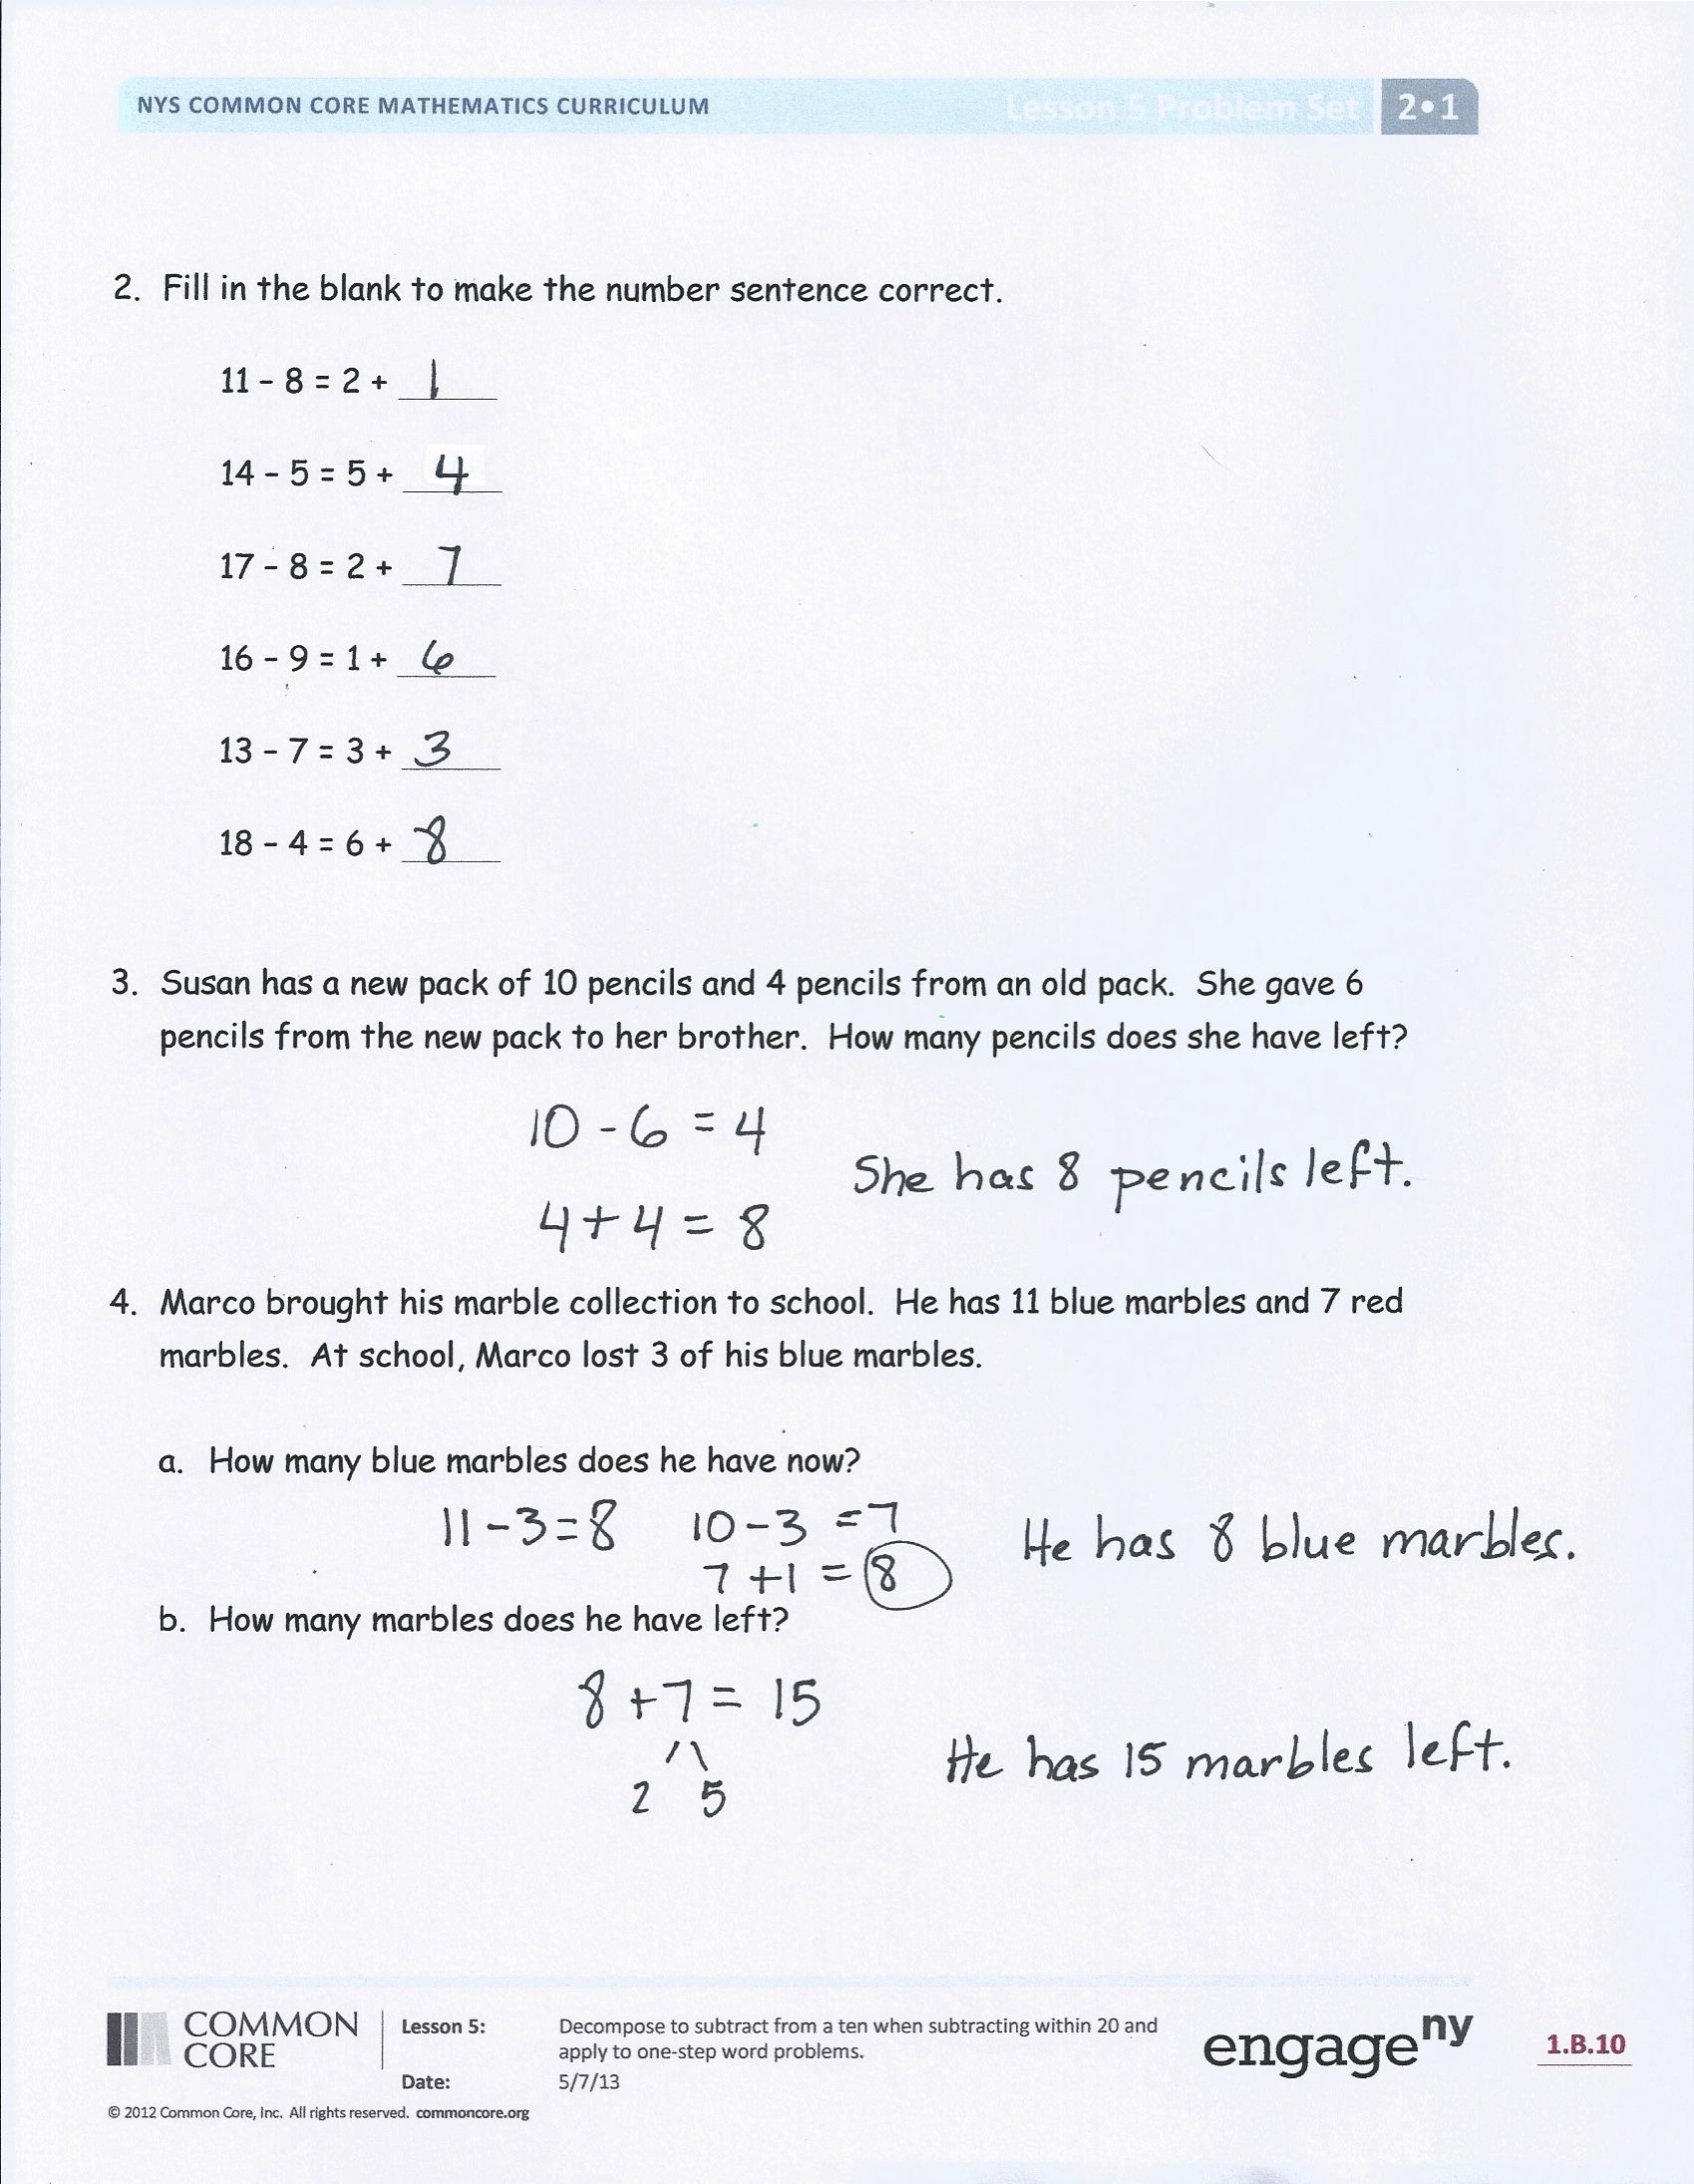 NYS COMMON CORE MATHEMATICS CURRICULUM Lesson 5 Problem Set 2•1
2. Fill in the blank to make the number sentence correct.
11 - 8 = 2 + 1
14 - 5 = 5 + 4
17 - 8 = 2 + 7
16 - 9 = 1 + 6
13 - 7 = 3 + 3
18 - 4 = 6 + 8
3. Susan has a new pack of 10 pencils and 4 pencils from an old pack. She gave 6
pencils from the new pack to her brother. How many pencils does she have left?
10 - 6 = 4
She has 8 pencils left.
4 + 4 = 8
4. Marco brought his marble collection to school. He has 11 blue marbles and 7 red
marbles. At school, Marco lost 3 of his blue marbles.
a. How many blue marbles does he have now?
11 - 3 = 8 10 - 3 = 7 He has 8 blue marbles.
7 + 1 = 8
b. How many marbles does he have left?
8 + 7 = 15
He has 15 marbles left.
2 5
COMMON CORE
Lesson 5: Decompose to subtract from a ten when subtracting within 20 and
apply to one-step word problems.
Date: 5/7/13
engage ny
1.B.10
© 2012 Common Core, Inc. All rights reserved. commoncore.org